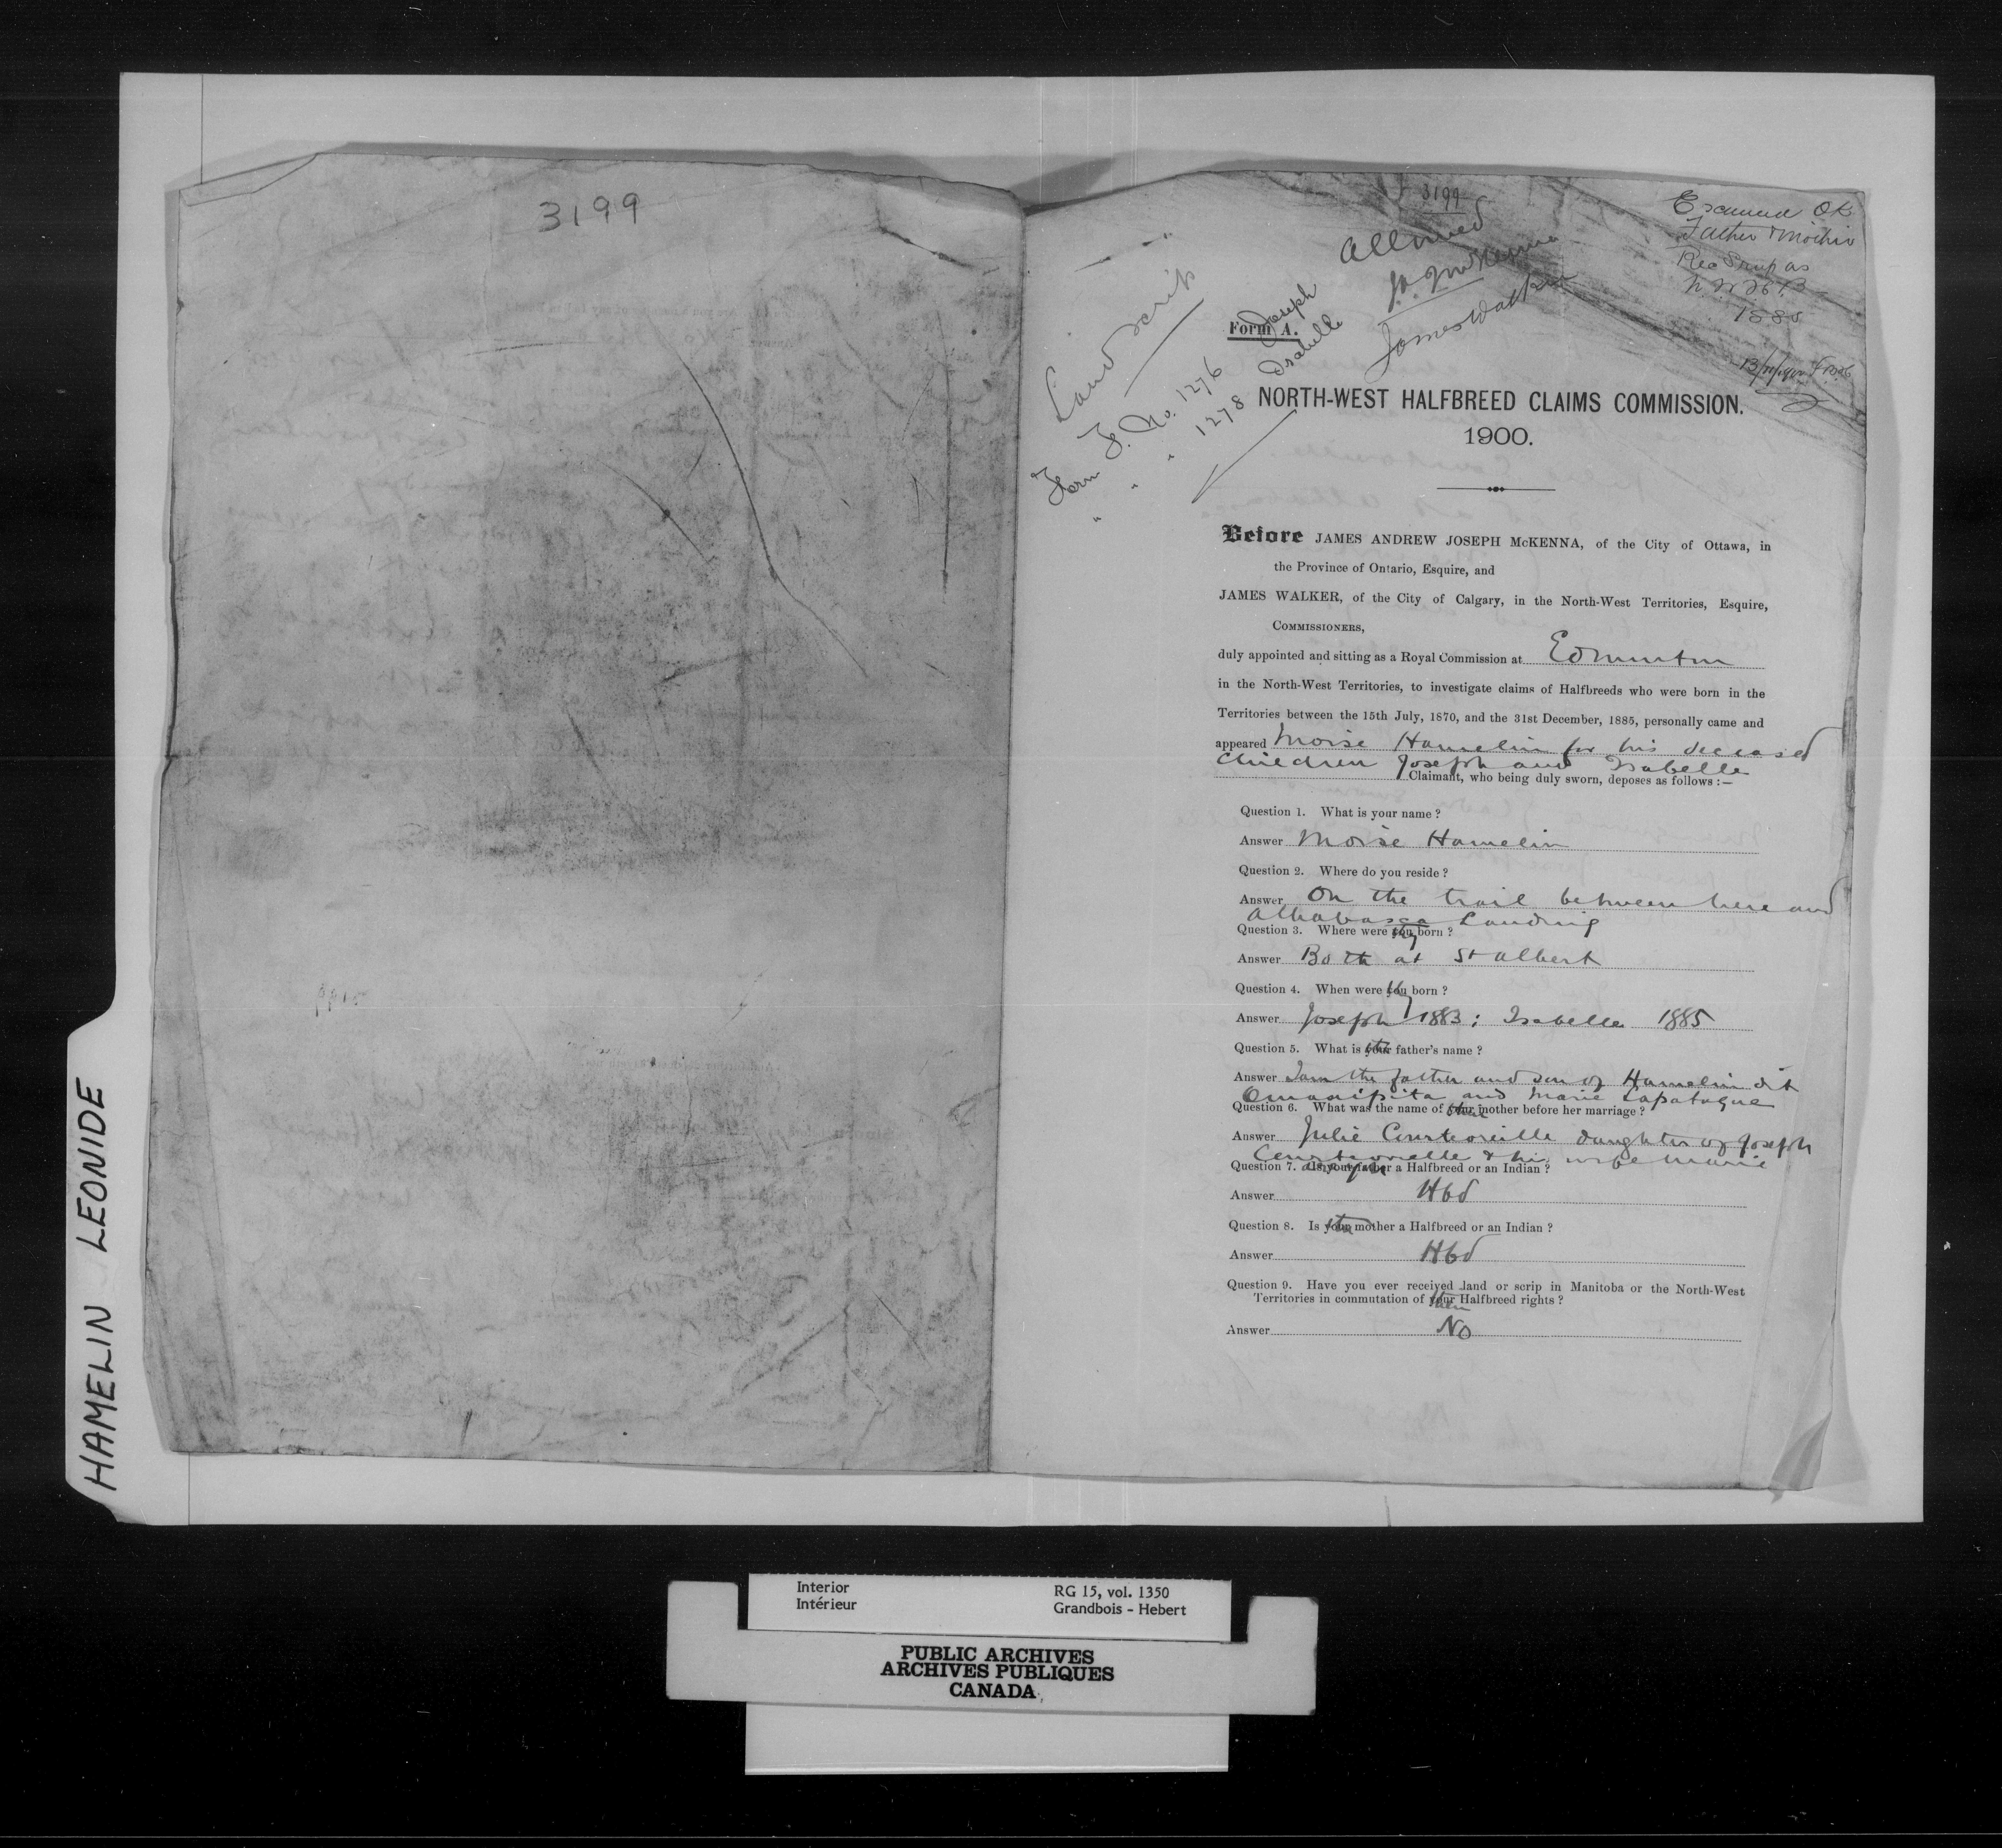 HAMELIN LEONIDE
3199
3199
Allowed
J.A.J. McKenna
James Walker
Examined OK
Father & Mother
Rec Scrip as
N.W.H.B
1885
Land scrip
Form F. No. 1276 Joseph
" " 1278 Isabelle
Form A.
NORTH-WEST HALFBREED CLAIMS COMMISSION.
1900.
Before JAMES ANDREW JOSEPH McKENNA, of the City of Ottawa, in
the Province of Ontario, Esquire, and
JAMES WALKER, of the City of Calgary, in the North-West Territories, Esquire,
COMMISSIONERS,
duly appointed and sitting as a Royal Commission at Edmonton
in the North-West Territories, to investigate claims of Halfbreeds who were born in the
Territories between the 15th July, 1870, and the 31st December, 1885, personally came and
appeared Moise Hamelin for his deceased
children Joseph and Isabelle
Claimant, who being duly sworn, deposes as follows :—
Question 1. What is your name ?
Answer Moise Hamelin
Question 2. Where do you reside ?
Answer On the trail between here and
Athabasca Landing
Question 3. Where were they born ?
Answer Both at St Albert
Question 4. When were they born ?
Answer Joseph 1883; Isabelle 1885
Question 5. What is their father's name ?
Answer I am the father and son of Hamelin dit
Omasipita and Marie Lapataque
Question 6. What was the name of their mother before her marriage ?
Answer Julie Courteoreille daughter of Joseph
Courteoreille & his wife Marie
Question 7. Is your father a Halfbreed or an Indian ?
Answer Hbd
Question 8. Is their mother a Halfbreed or an Indian ?
Answer Hbd
Question 9. Have you ever received land or scrip in Manitoba or the North-West
Territories in commutation of their Halfbreed rights ?
Answer No
Interior
Intérieur
RG 15, vol. 1350
Grandbois - Hebert
PUBLIC ARCHIVES
ARCHIVES PUBLIQUES
CANADA